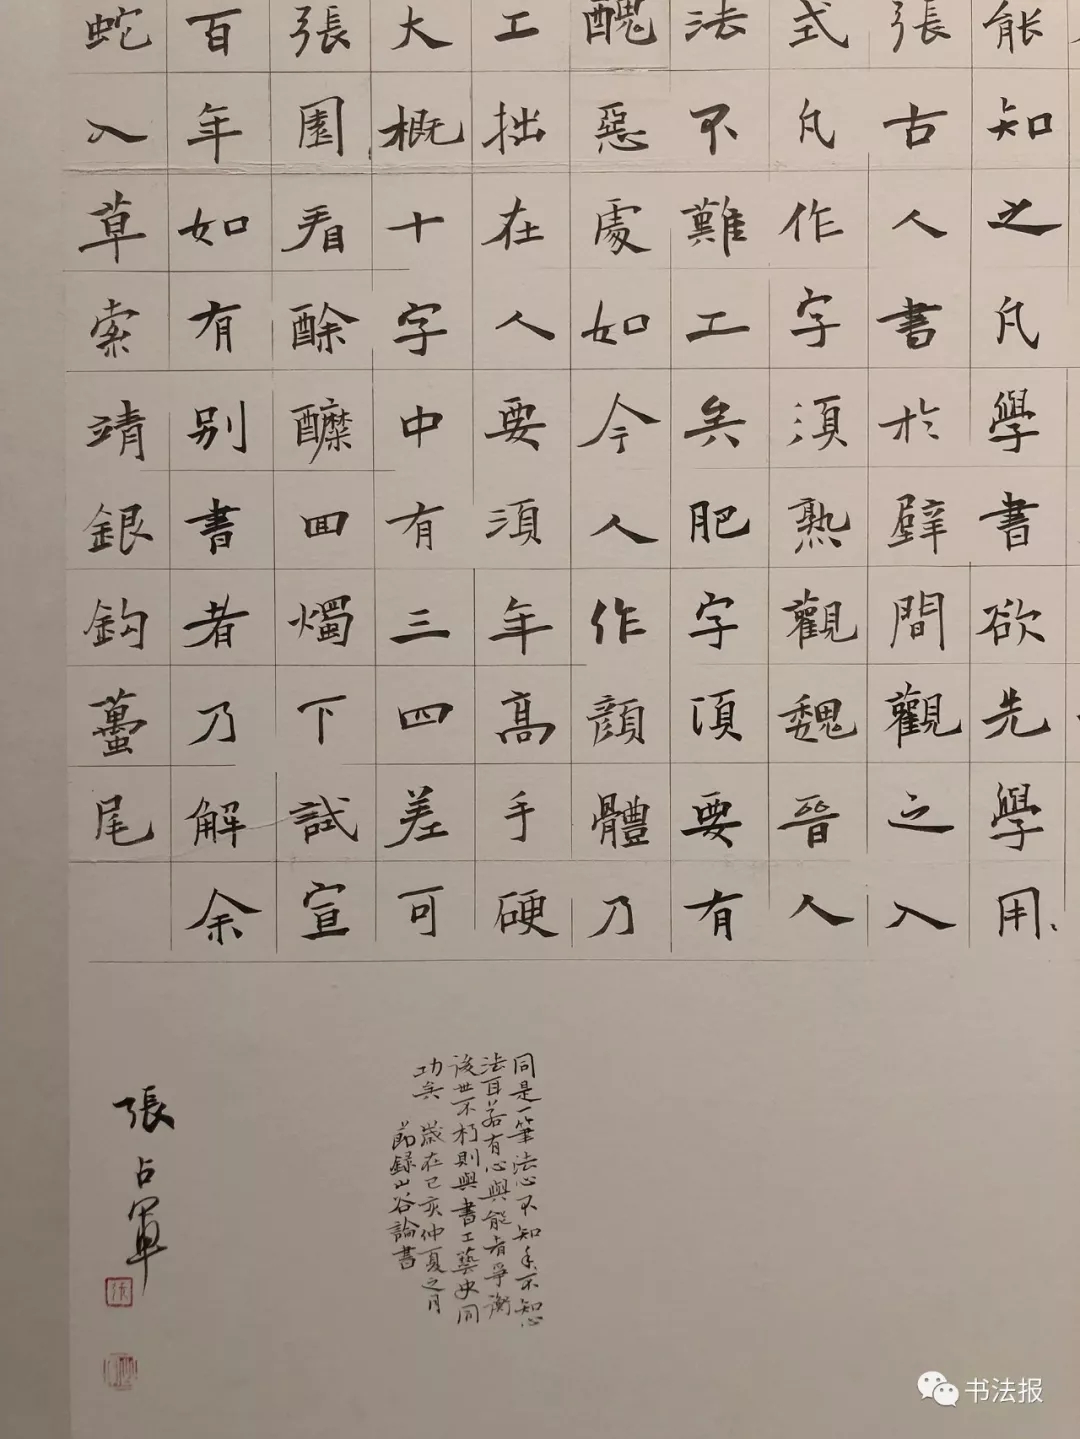 能知之凡學書欲先學用
張古人書於壁間觀之入
式凡作字須熟觀魏晉人
法不難工矣肥字須要有
醜惡處如今人作顏體乃
工拙在人要須年高手硬
大概十字中有三四差可
張園看酴醾回燭下試宣
百年如有別書者乃解余
蛇入草索靖銀鈎蠆尾
同是一筆法心不知手不知心
法耳若有心與能者爭衡
後世不朽則與書工藝史同
功矣 歲在己亥仲夏之月
節錄山谷論書
張占軍
书法报